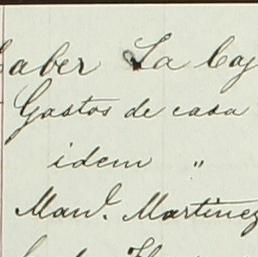 aber La Caj
Gastos de casa
idem "
Man.l Martinez